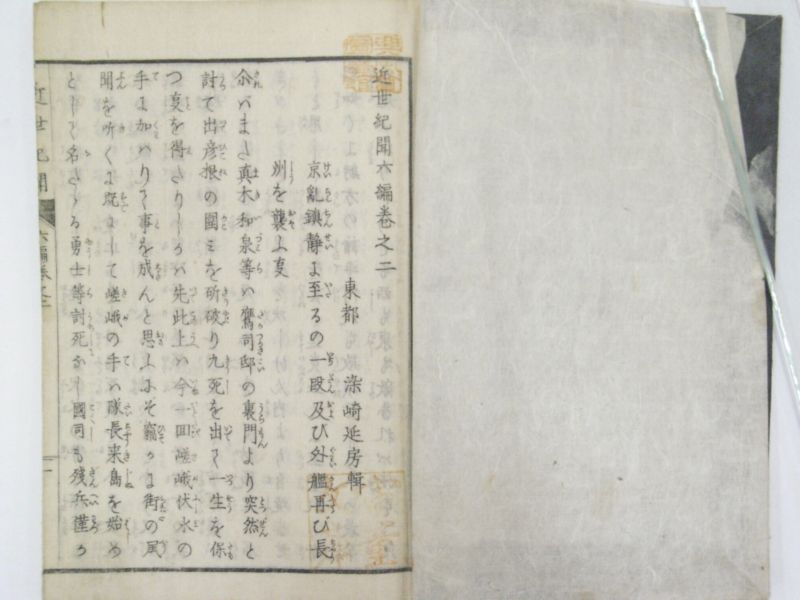 近世紀聞六編巻之二
東都 染崎延房輯
京乱鎮静ま至るの一段及び外艦再び長
州を襲ふ事
尒バまさ真木和泉等ハ鷹司邸の裏門より突然と
討て出彦根の囲ミを斫破り九死を出て一生を保
つ事を得さりしかバ先此上ハ今一回嵯峨伏水の
手ま加ハりて事を成んと思ふふぞ竊かま街の風
聞を听くま既ましてて嵯峨の手ハ隊長来島を始め
として名ある勇士等討死なし國司も残兵僅か
近世紀聞
六編巻之二